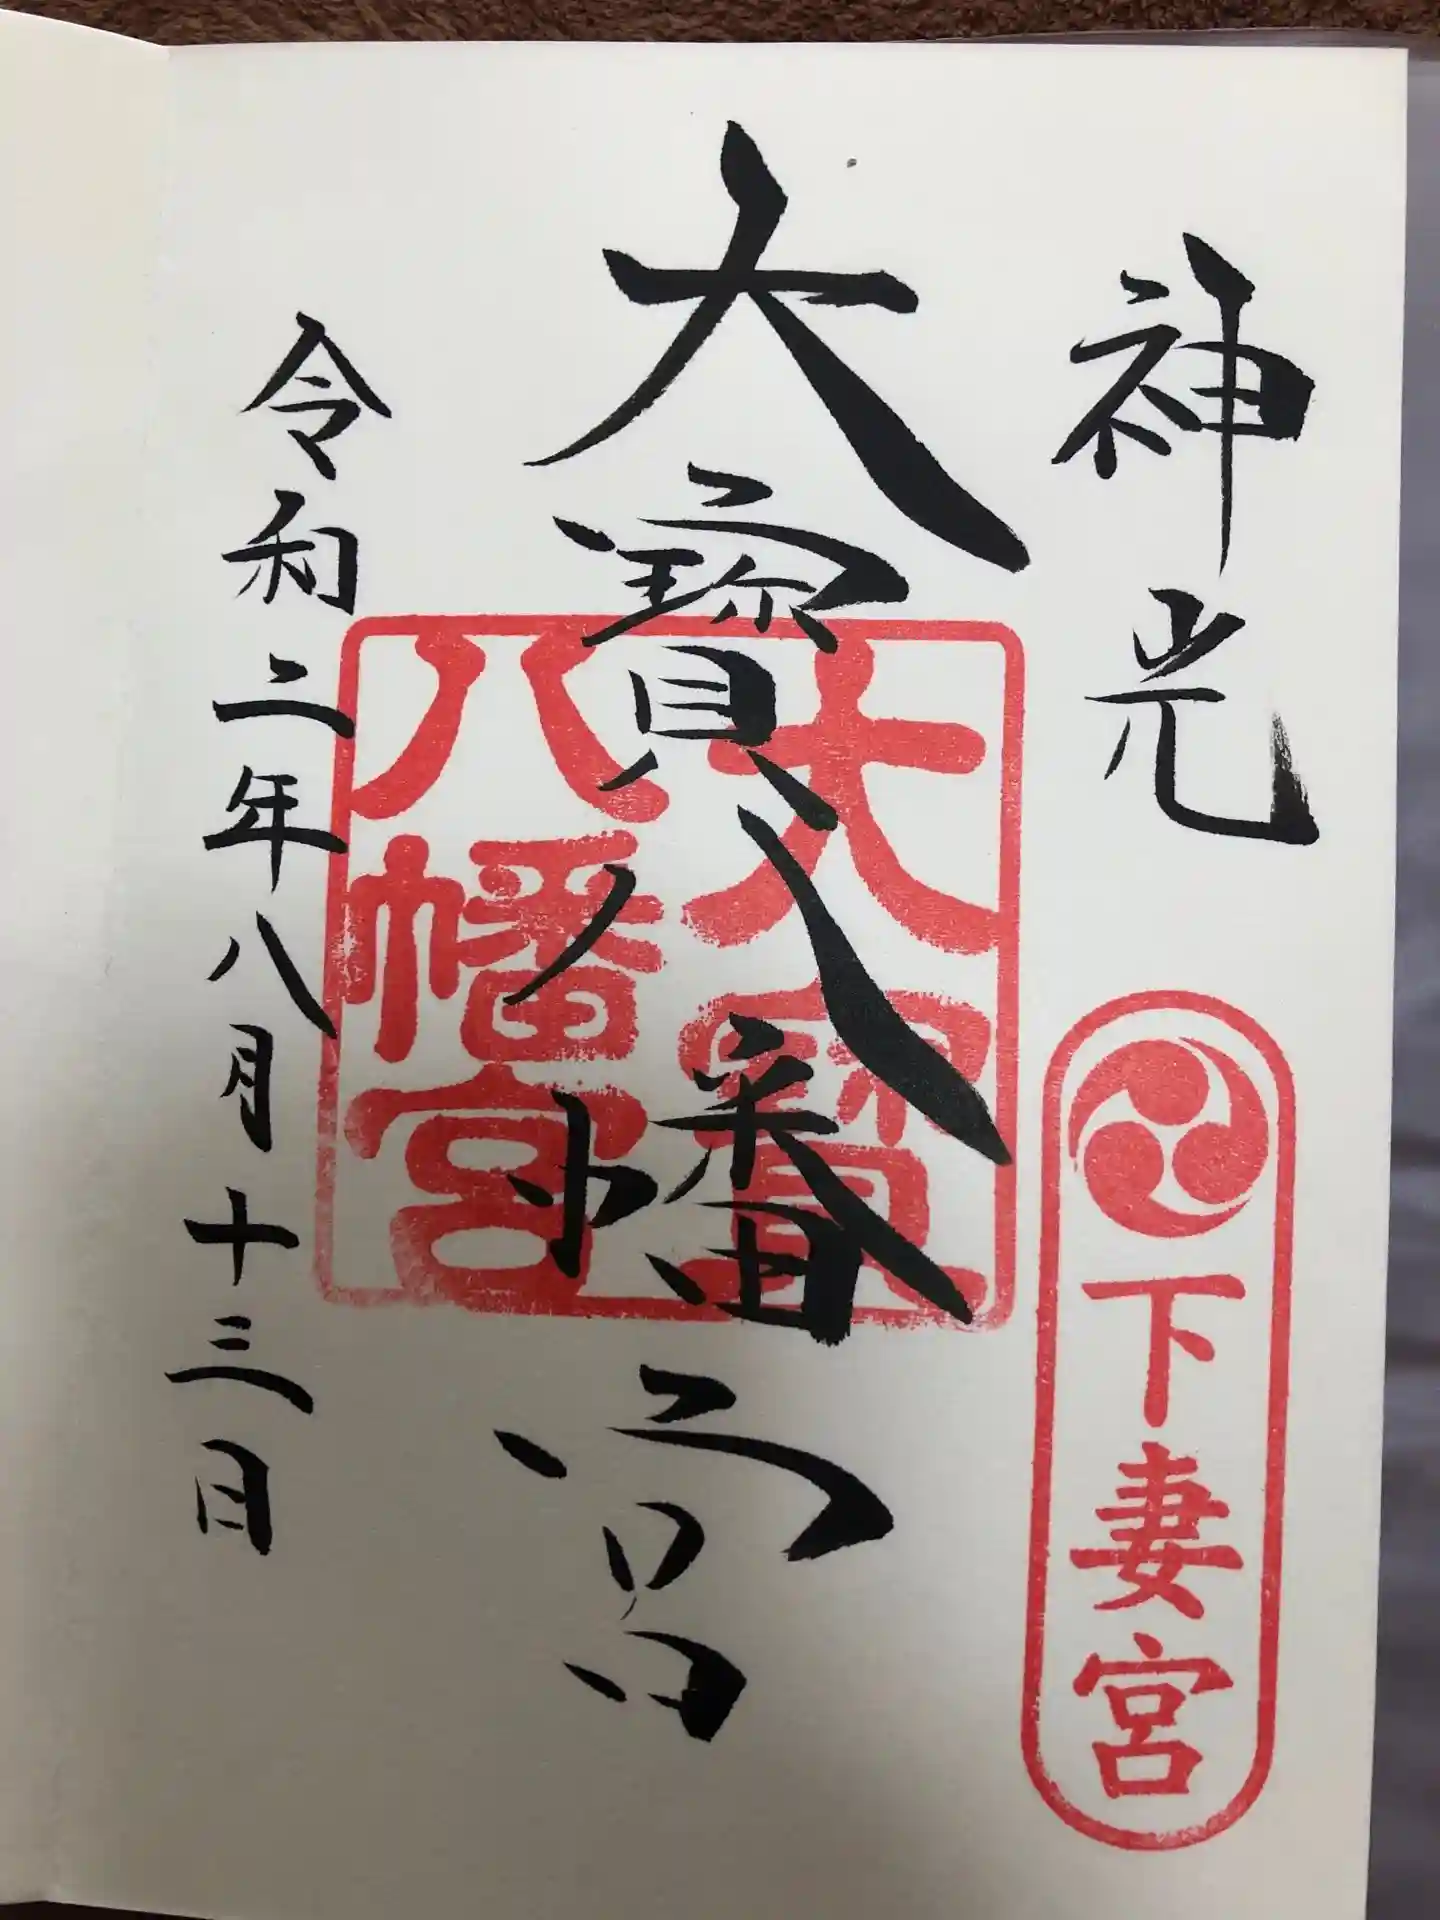 神光
下妻宮
大寳八幡宮
大寳
八幡宮
令和二年八月十三日